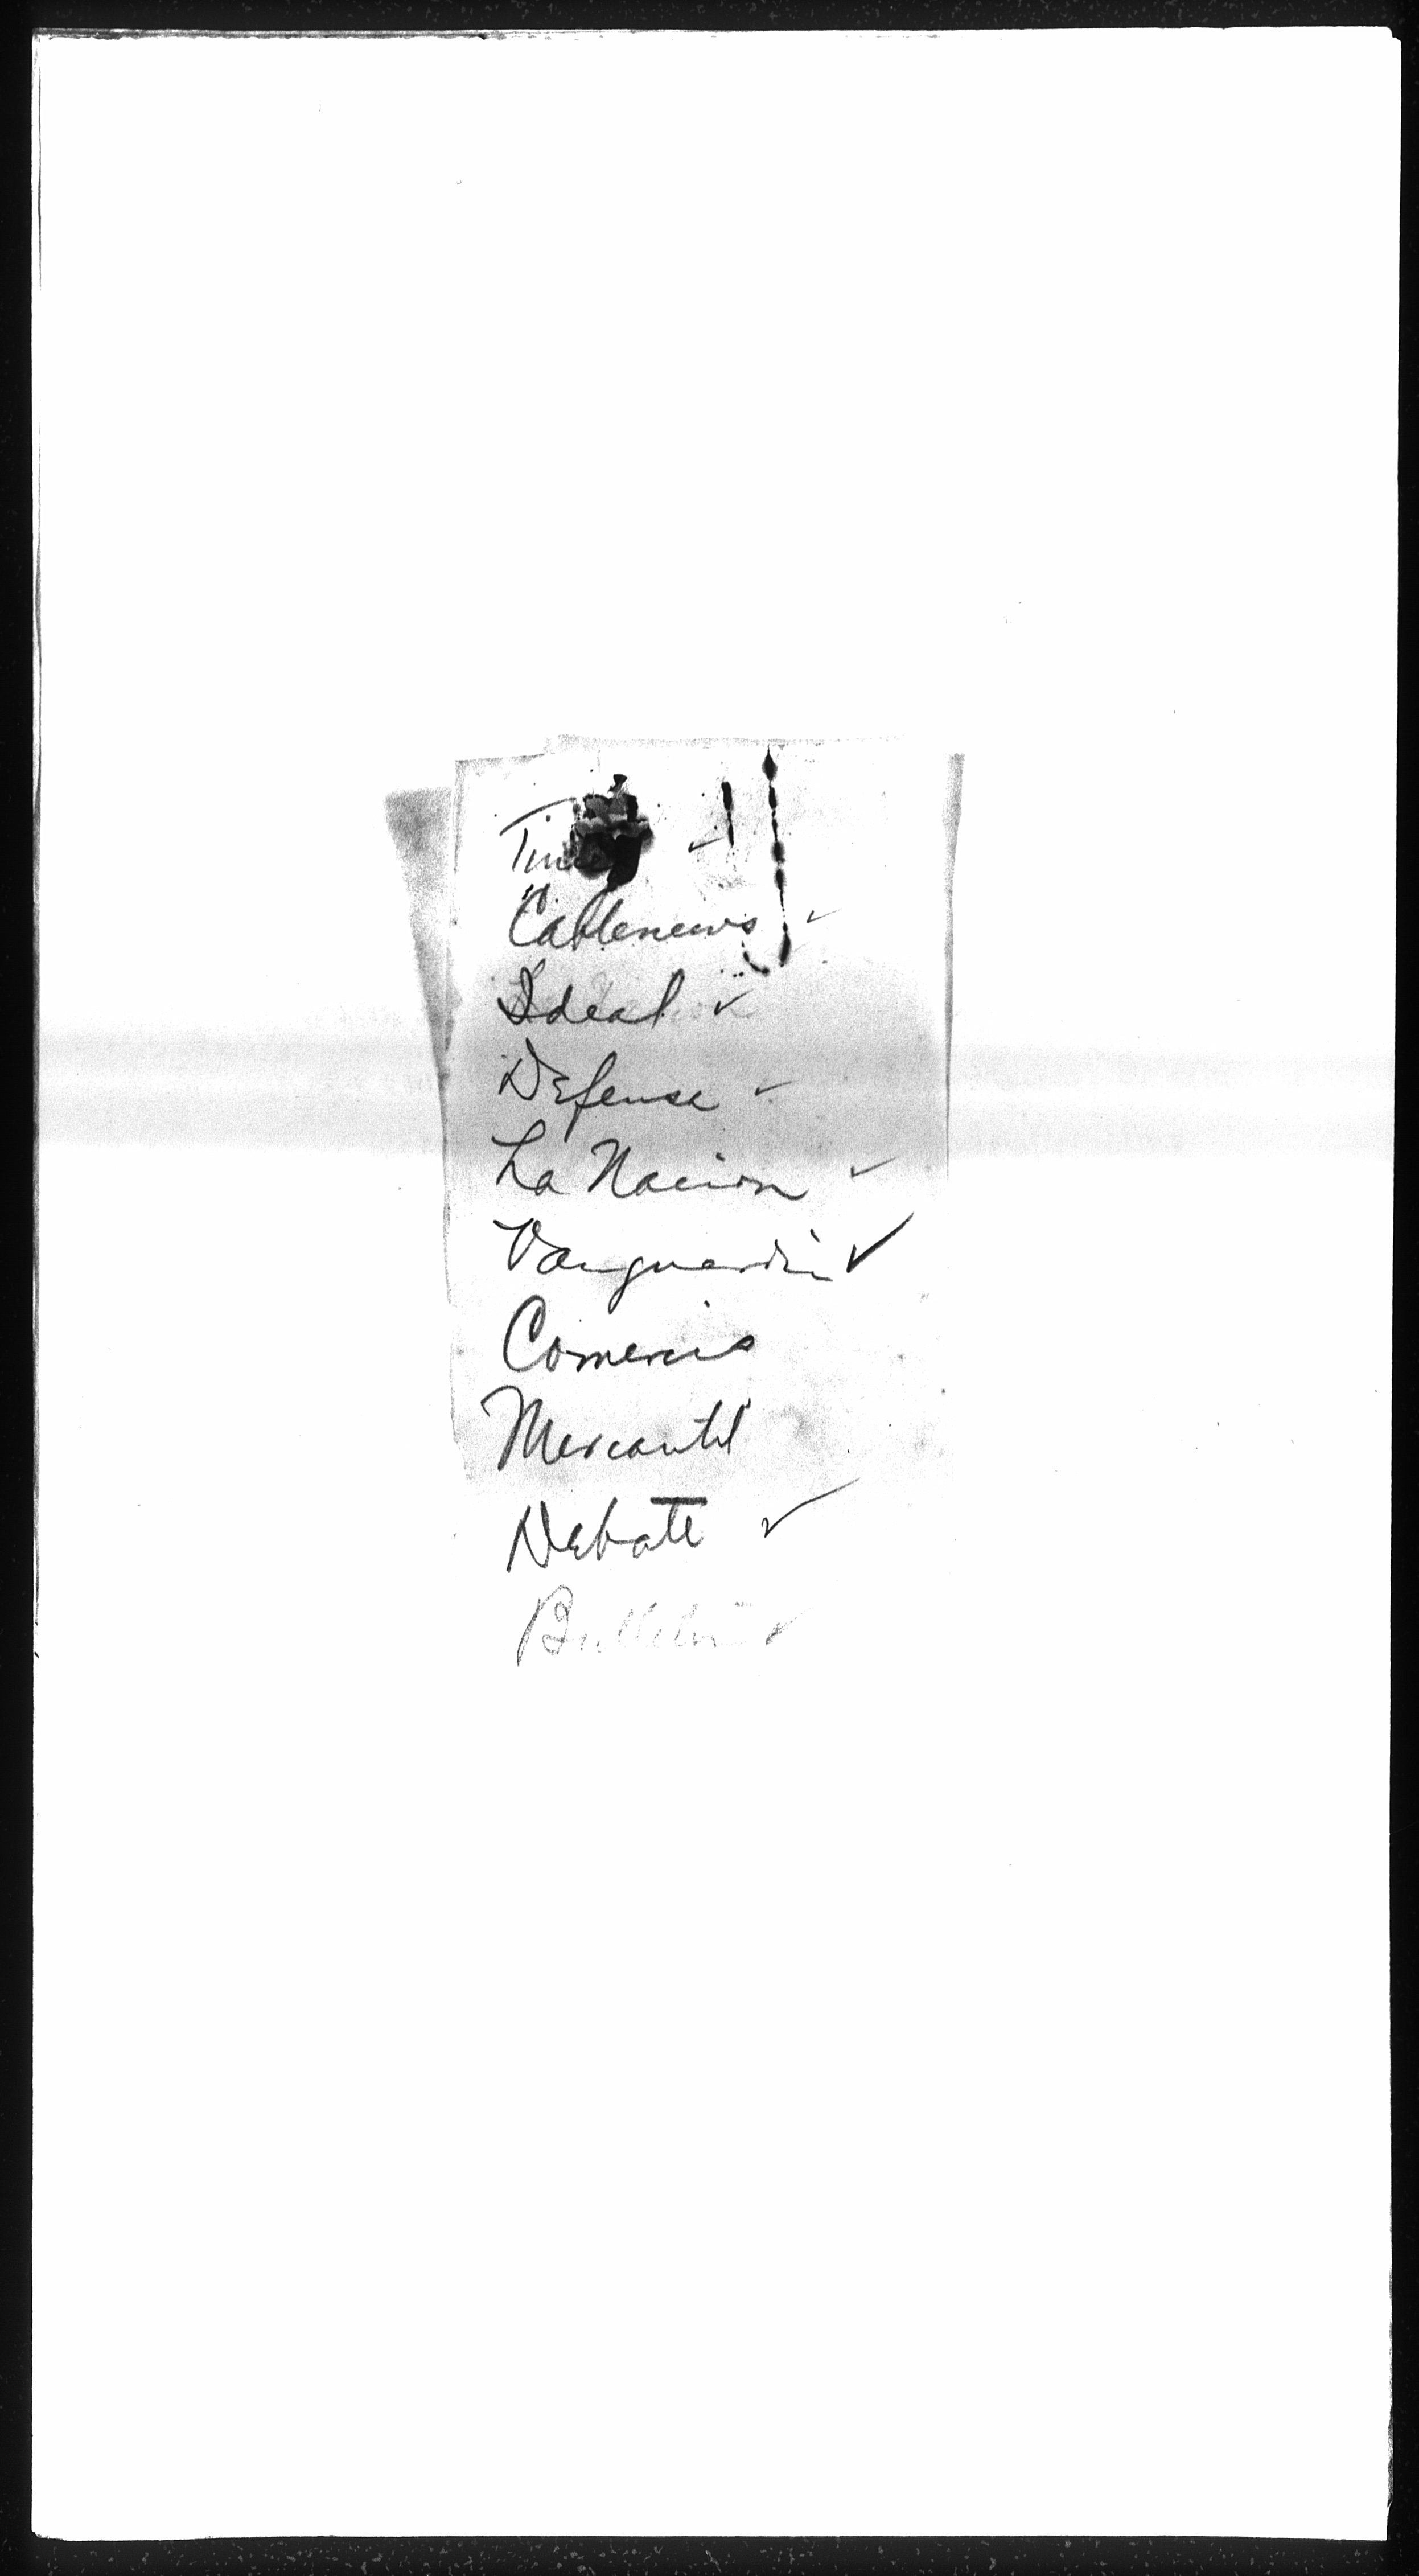 Times ✓
Cablenews ✓
Ideal ✓
Defense ✓
La Nacion ✓
Vanguardia ✓
Comercio
Mercantil
Debate ✓
Bulletin ✓